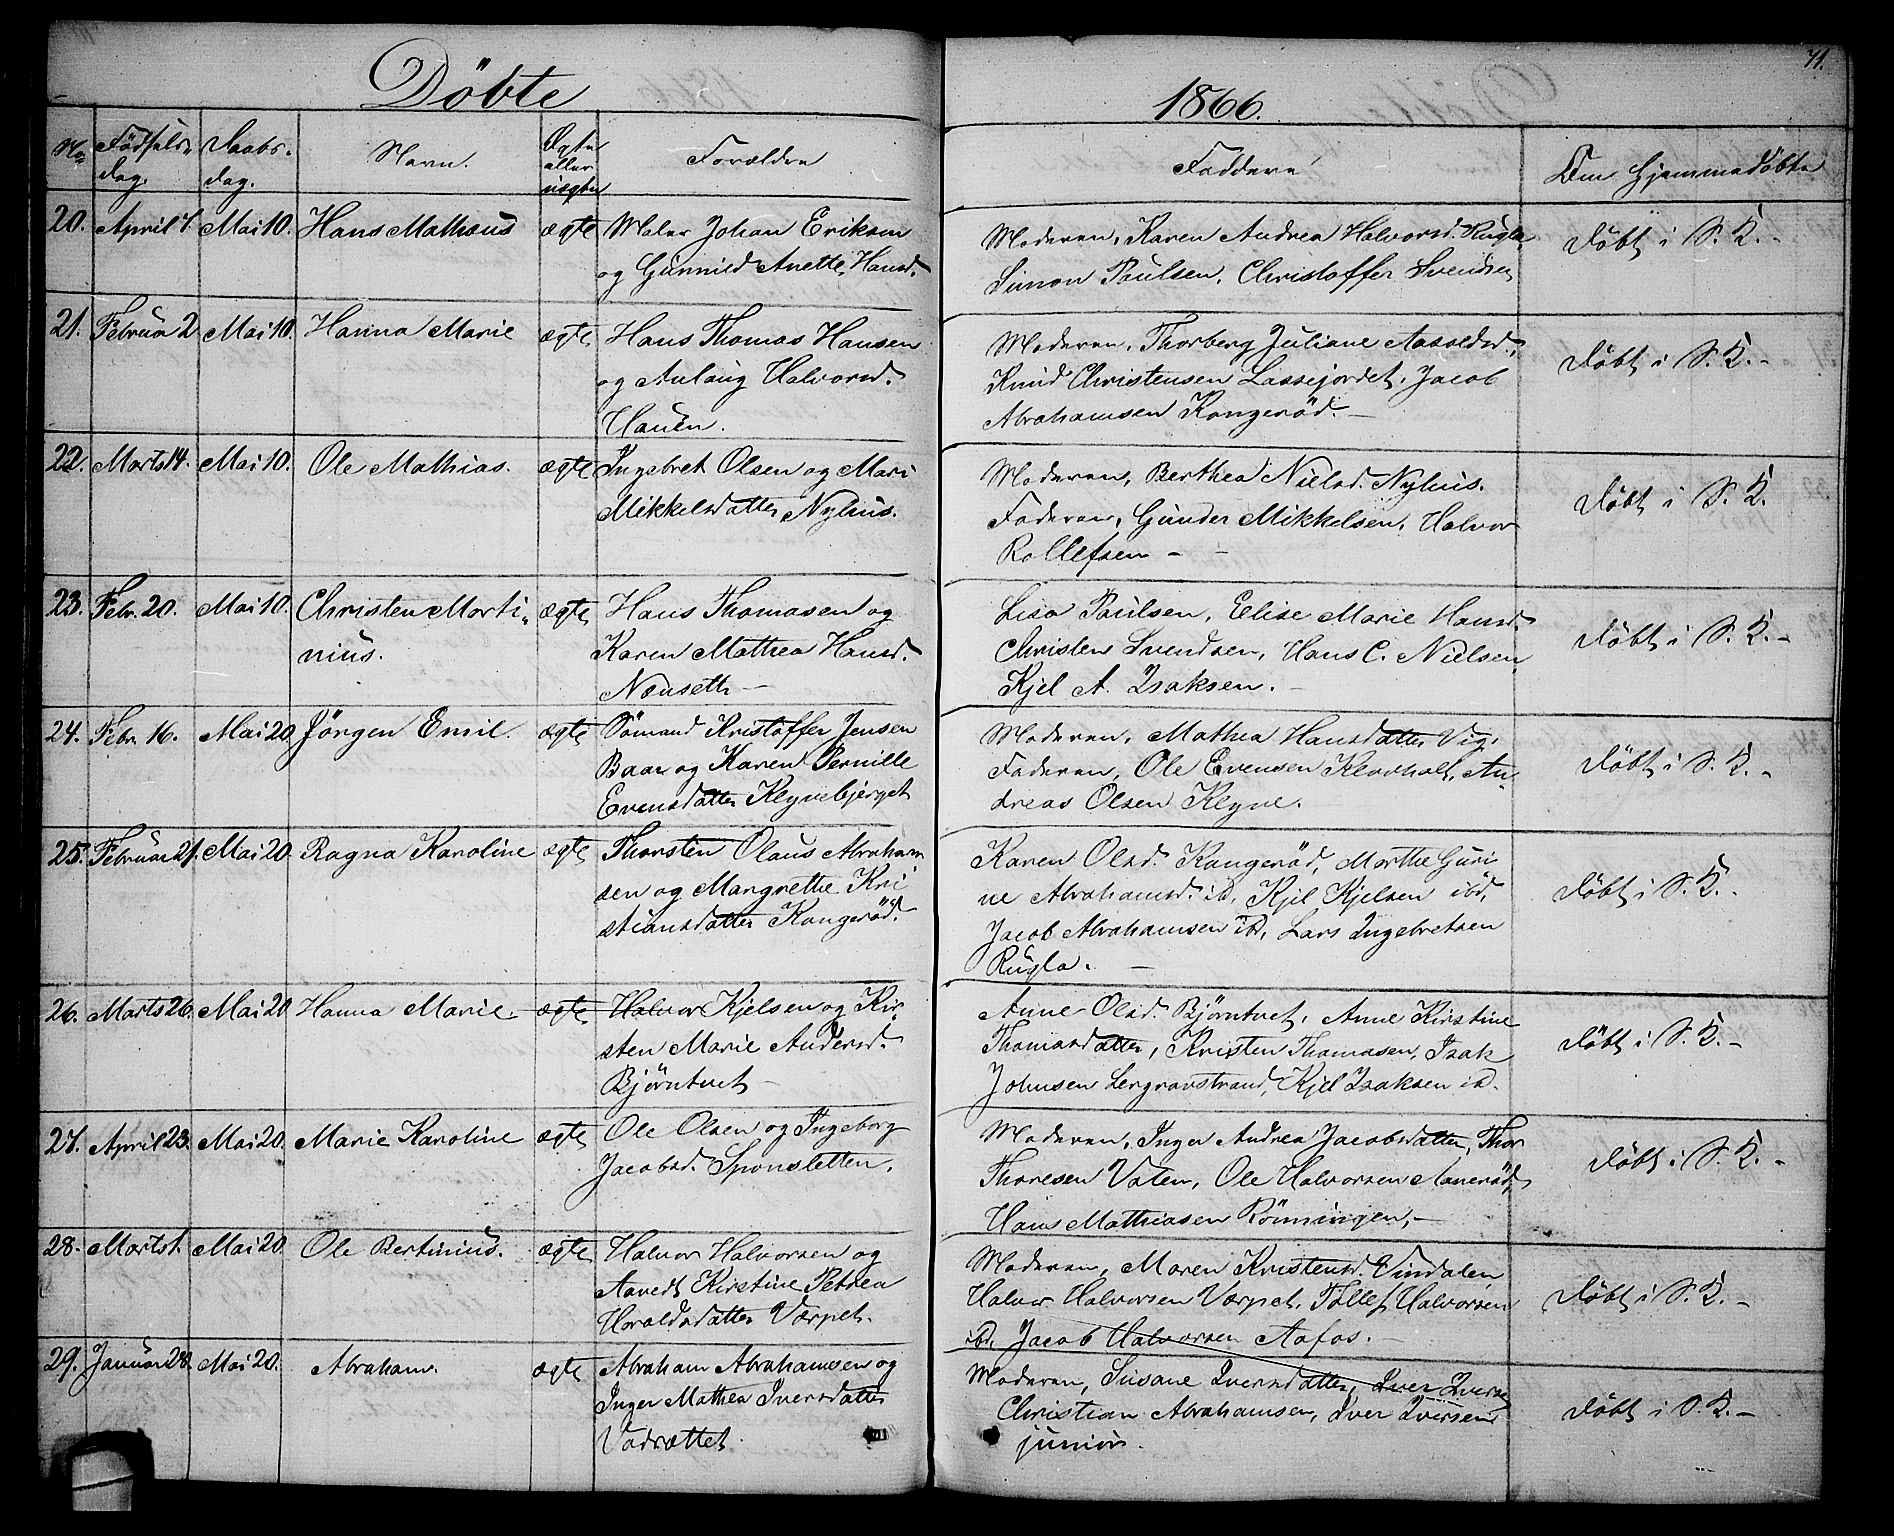 Döbte
1866.
71.
No Fødsels-dag. Daabs-dag. Navn. Ægte eller uægte Forældre Faddere Om Hjemmedøbte
20. April 7. Mai 10. Hans Mathæus ægte Maler Johan Eriksen
og Gunnild Anette Hansd.
Moderen, Karen Andrea Halvorsd. Rugla
Simon Paulsen, Christoffer Svendsen
Døbt i S. K. -
21. Februar 2 Mai 10. Hanna Marie ægte Hans Thomas Hansen
og Anlaug Halvorsd.
Hauen.
Moderen, Thorberg Juliane Aasoldsd.,
Knud Christensen Lassejordet, Jacob
Abrahamsen Kongeröd. -
Døbt i S. K. -
22. Marts 14. Mai 10. Ole Mathias. ægte Ingebret Olsen og Mari
Mikkelsdatter Nyhus.
Moderen, Berthea Nielsd. Nyhus.
Faderen, Gunder Mikkelsen, Halvor
Rollefsen -
Døbt i S. K.
23. Febr. 20. Mai 10. Christen Marti-
nius. ægte Hans Thomasen og
Karen Mathea Hansd.
Nenseth -
Lisa Paulsen, Elise Marie Hansd.
Christen Svendsen, Hans C. Nielsen,
Kjel A. Isaksen. -
Døbt i S. K. -
24. Febr. 16. Mai 20. Jörgen Emil. ægte Sömand Kristoffer Jensen
Baar og Karen Pernille
Evensdatter Klyvebjerget
Moderen, Mathea Hansdatter Vig,
Faderen, Ole Evensen Klovholt, An-
dreas Olsen Klyve.
Døbt i S. K. -
25. Februar 21. Mai 20. Ragna Karoline ægte Thorsten Olaus Abraham
sen og Margrethe Kri
stiansdatter Kongeröd.
Karen Olsd. Kongeröd, Marthe Guri
ne Abrahamsd. ib, Kjel Kjelsen ibd,
Jacob Abrahamsen ib, Lars Ingebretsen
Rugla. -
Døbt i S. K. -
26. Marts 26. Mai 20 Hanna Marie. ægte Halvor Kjelsen og Kir-
sten Marie Andersd.
Bjørntvet -
Anne Olsd. Bjørntvet, Anne Kirstine
Thomasdatter, Kristen Thomasen, Isak
Johnsen Lergravstrand, Kjel Isaksen ib.
Døbt i S. K. -
27. April 23. Mai 20. Marie Karoline ægte Ole Olsen og Ingeborg
Jacobsd. Sponsletten.
Moderen, Inger Andrea Jacobsdatter, Thor
Thoresen Valen, Ole Halvorsen Aaneröd,
Hans Mathiasen Rönningen, -
Døbt i S. K. -
28. Marts 1. Mai 20 Ole Bertinius. ægte Halvor Halvorsen og
Kirstine Petrea
Haraldsdatter Værpet.
Moderen, Maren Kristensd. Vindalen,
Halvor Halvorsen Værpet, Tollef Halvorsen
ib. Jacob Halvorsen Aafos. -
Døbt i S. K. -
29. Januar 28. Mai 20. Abraham. ægte Abraham Abrahamsen og
Inger Mathea Iversdatter
Vadrættet.
Moderen, Susane Iversdatter, Iver Iversen
Christian Abrahamsen, Iver Iversen
junior.
Døbt i S. K. -